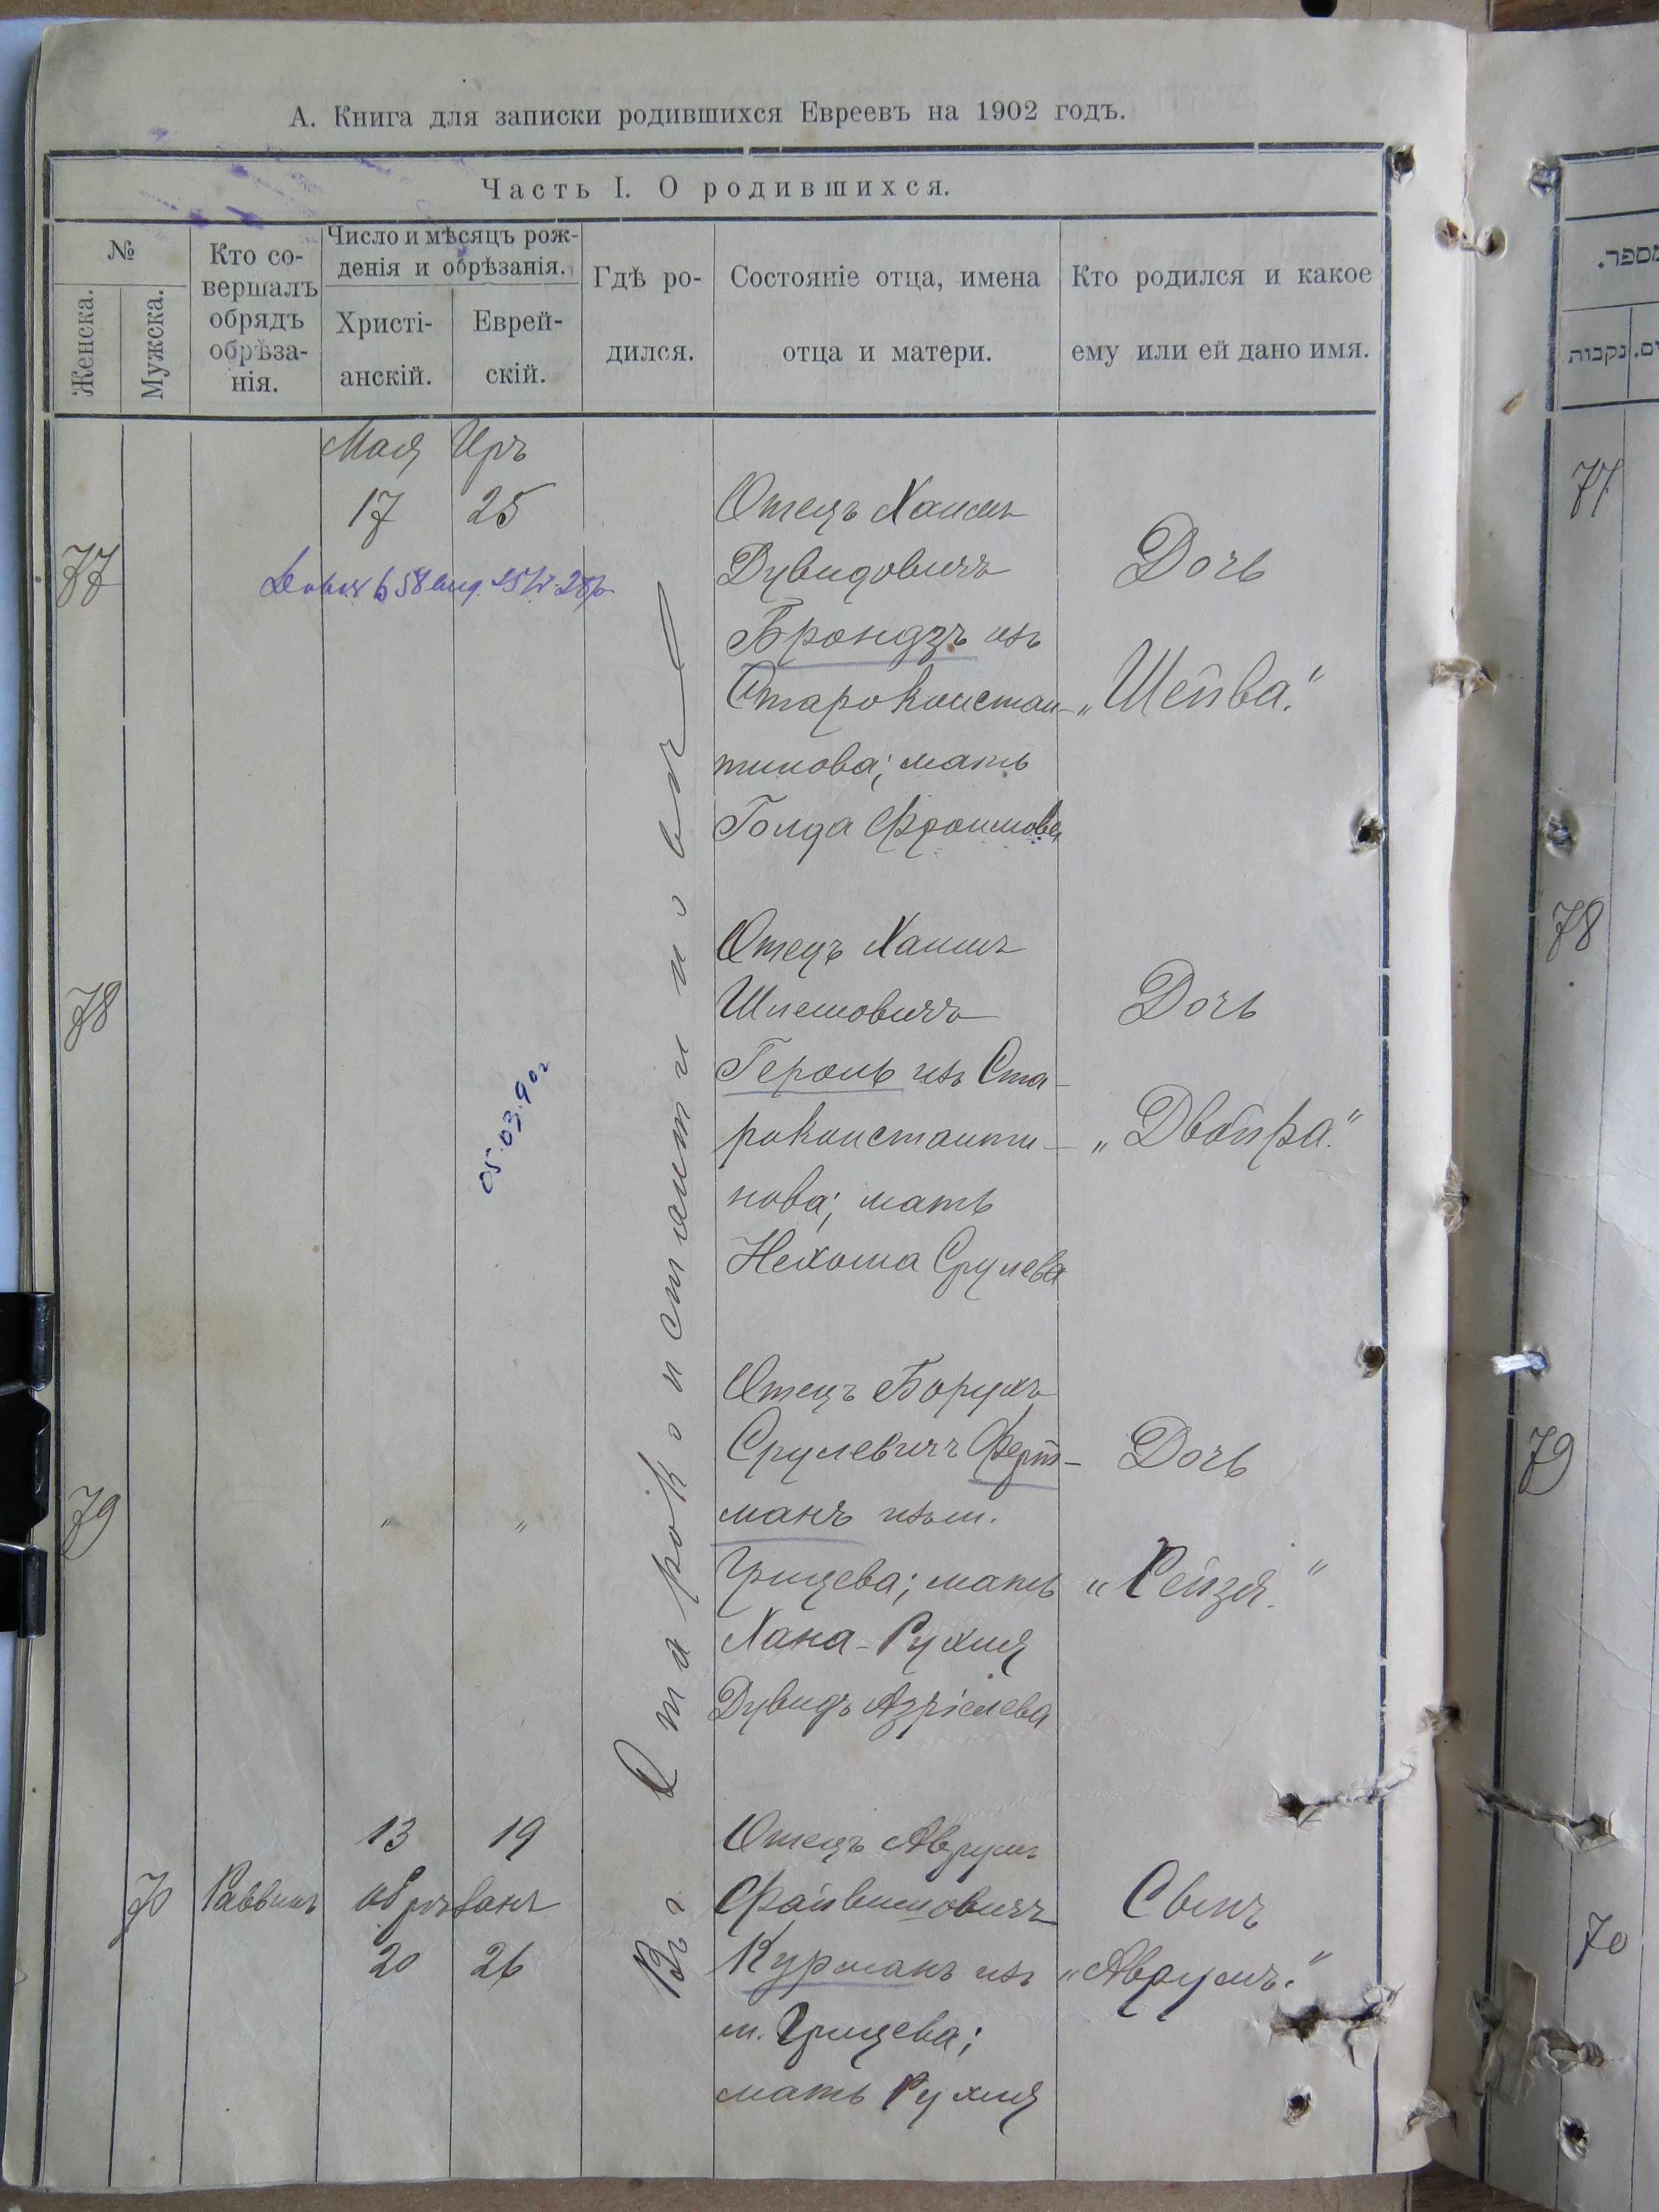 А. Книга для записки родившихся Евреевъ на 1902 годъ.
Часть I. О родившихся.
№
Женска.
Мужска.
Кто со-
вершалъ
обрядъ
обрѣза-
нія.
Число и мѣсяцъ рож-
денія и обрѣзанія.
Христі-
анскій.
Еврей-
скій.
Гдѣ ро-
дился.
Состояніе отца, имена
отца и матери.
Кто родился и какое
ему или ей дано имя.
Мая Иръ
17 25
77
Отецъ Хаимъ
Дувидовичъ
Брондзъ изъ
Староконстан-
тинова; мать
Голда Фроимова
Дочь
„Шейва."
Въ Староконстантиновѣ
78
05.03.902
Отецъ Хаимъ
Шлемовичъ
Героль изъ Ста-
роконстанти-
нова; мать
Нехома Срулева
Дочь
„Двойра."
79
" "
Отецъ Борухъ
Срулевичъ Ферт-
манъ изъ м.
Грицева; мать
Хана-Рухля
Дувидъ Азріелева
Дочь
„Рейзя."
70
Раввинъ
13 19
обрѣзанъ
20 26
Отецъ Аврумъ
Файвишовичъ
Курманъ изъ
м. Грицева;
мать Рухля
Сынъ
„Аврумъ."
מספר.
נקבות
77
78
79
70